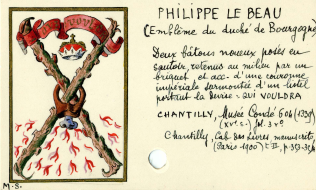 QUI VOULDRA
PHILIPPE LE BEAU
(Emblème du duché de Bourgogne)
Deux bâtons noueux posés en
sautoir, retenus au milieu par un
briquet, et acc. d'une couronne
impériale surmontée d'un listel
portant la devise : QUI VOULDRA
CHANTILLY, Musée Condé 606 (1339)
(XVI s.) fol. 3 v°
Chantilly, Cab. des Livres, manuscrits,
(Paris 1900) t. II, p. 353-354
M-S.